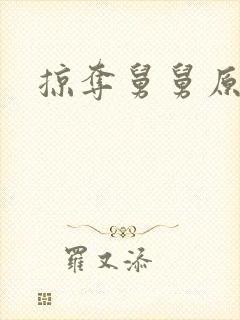 掠夺舅舅原
羅又添